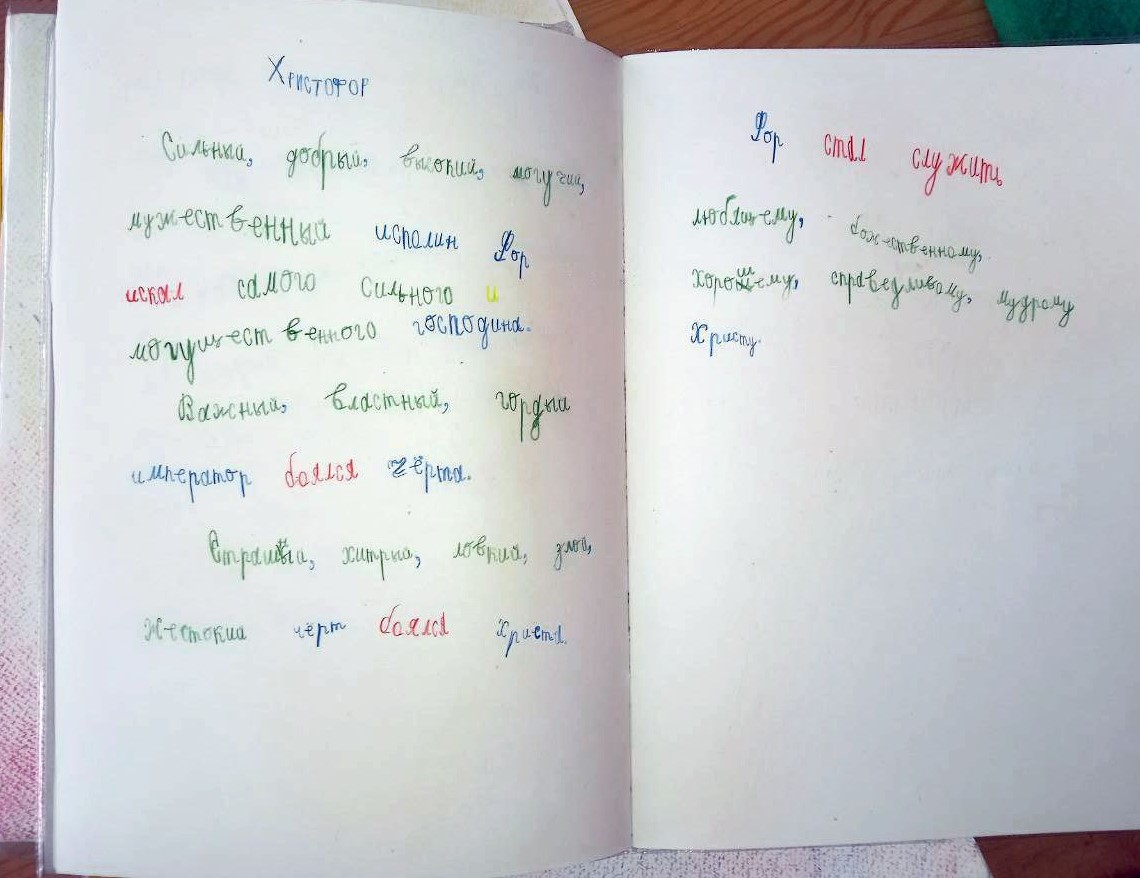 Христофор
Сильный, добрый, высокий, могучий,
мужественный исполин Фор
искал самого сильного и
могущественного господина.
Важный, властный, гордый
император боялся чёрта.
Страшный, хитрый, ловкий, злой,
жестокий чёрт боялся Христа.
Фор стал служить
любящему, божественному,
хорошему, справедливому, мудрому
Христу.